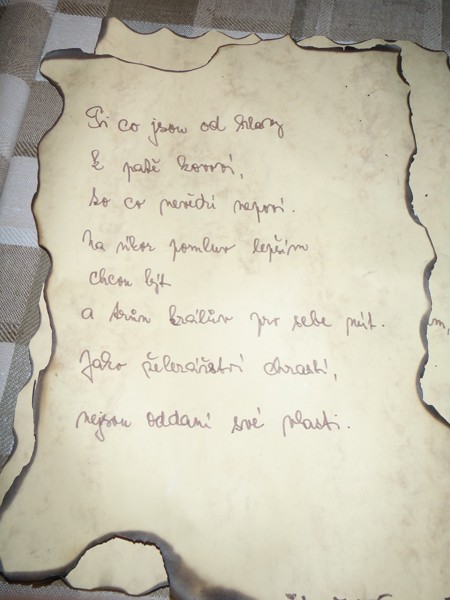 Ti co jsou od hlavy
k patě kovoví,
to co nevědí nepoví.
Na úkor pomluv lepším
chcou být
a trůn králův pro sebe mít.
Jako železářství chrastí,
nejsou oddaní své vlasti.